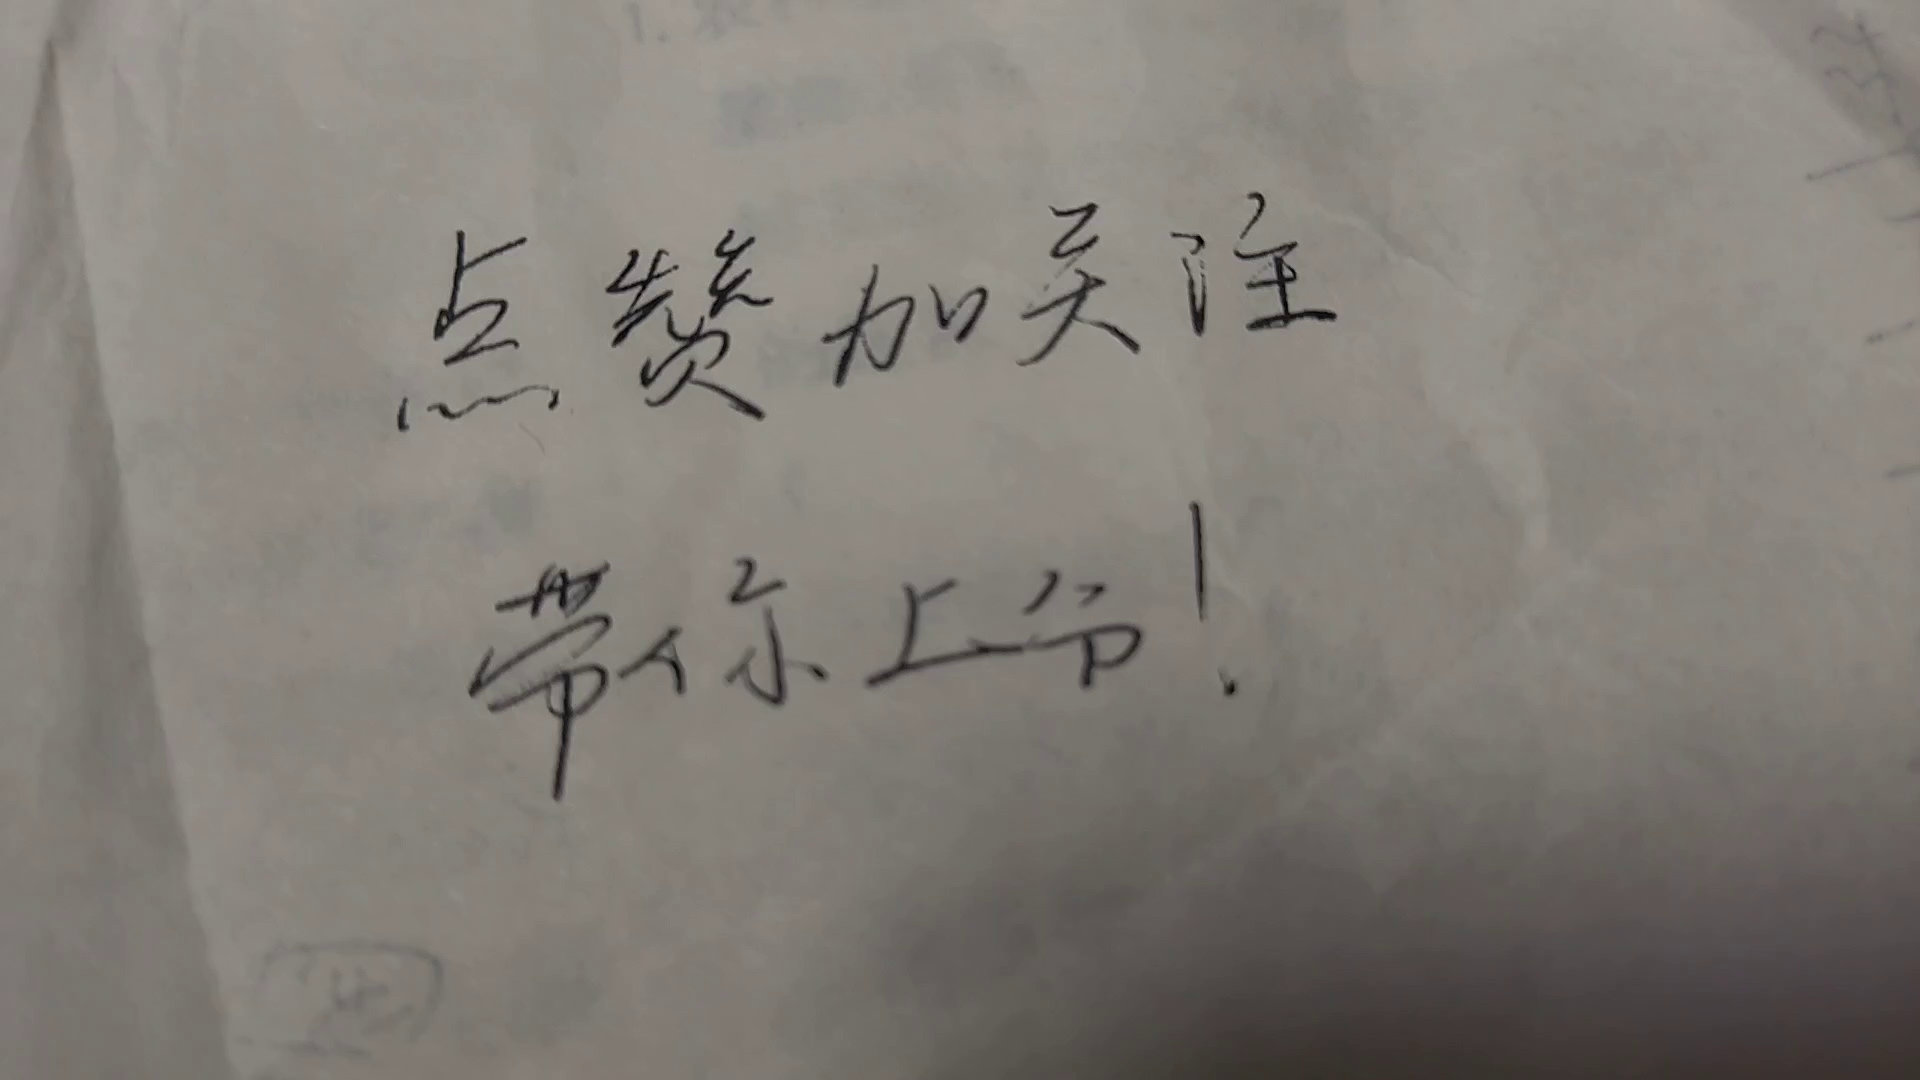 点赞加关注
带你上分!